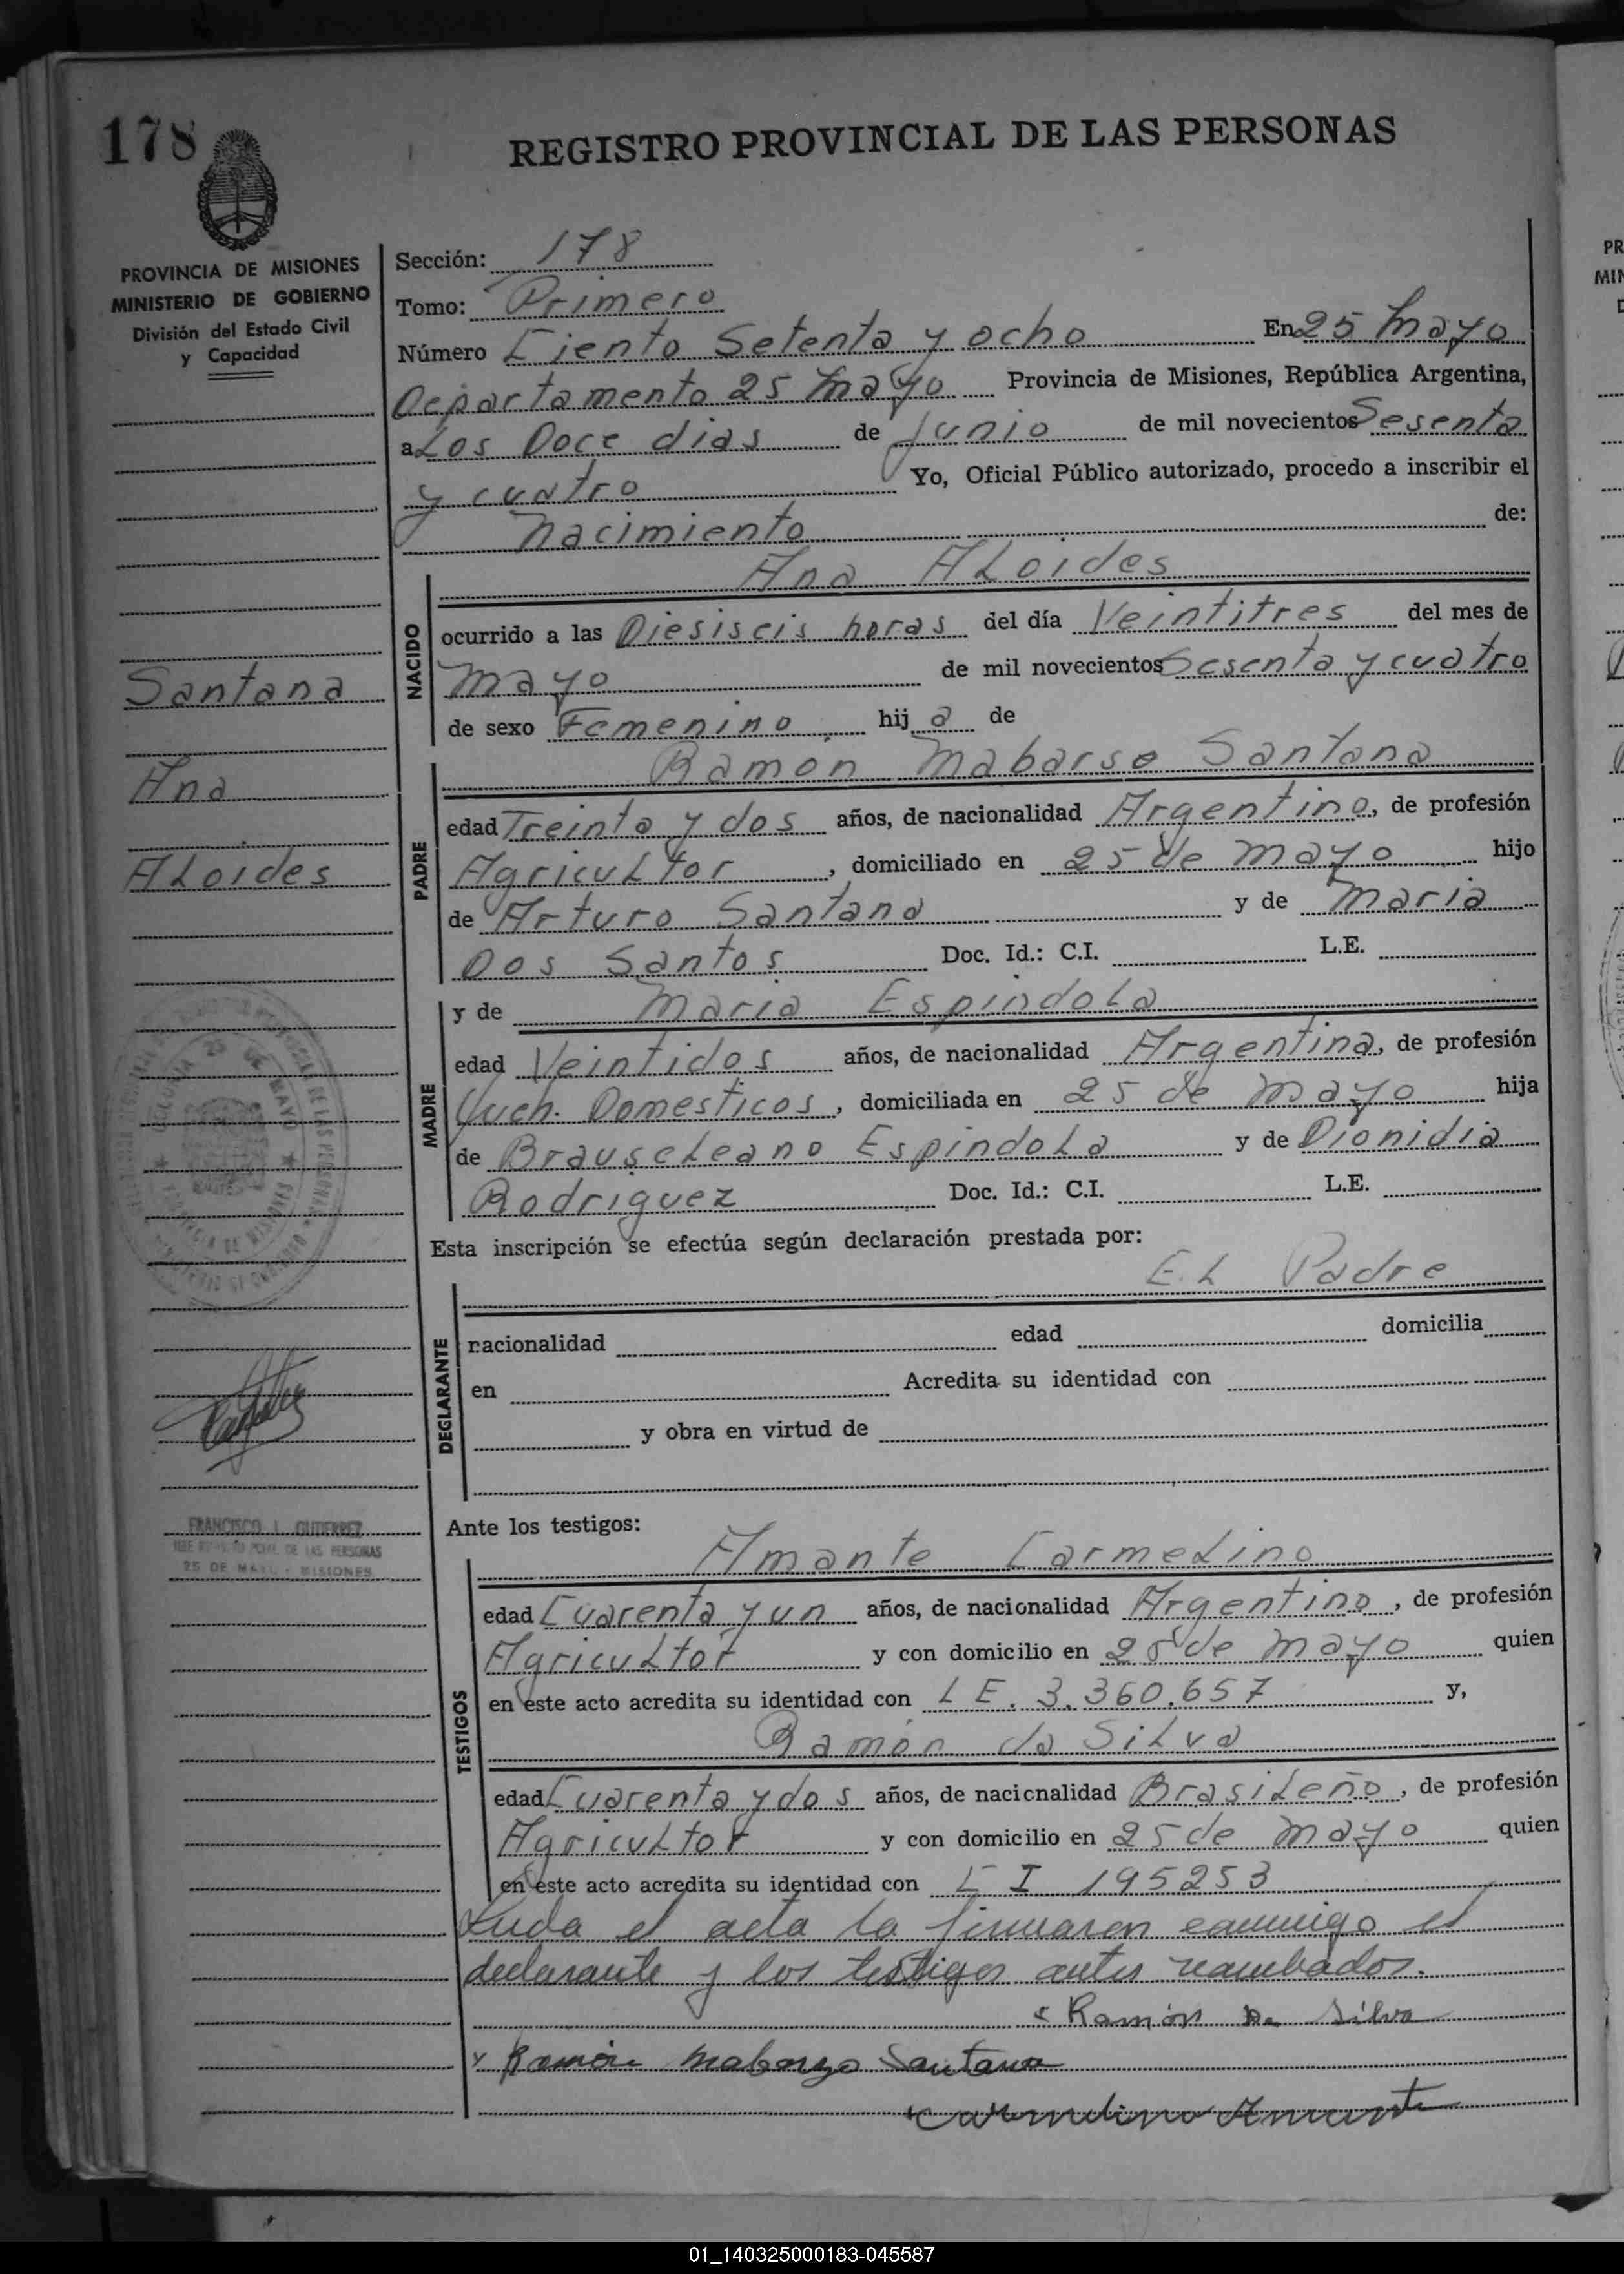 178
REGISTRO PROVINCIAL DE LAS PERSONAS
PROVINCIA DE MISIONES
MINISTERIO DE GOBIERNO
División del Estado Civil
y Capacidad
Santana
Ana
ALoides
FRANCISCO GUTIERREZ
DE LAS PERSONAS
25 DE MAYO - MISIONES
Sección: 178
Tomo: Primero
Número Ciento Setenta y ocho En 25 Mayo
Departamento 25 Mayo Provincia de Misiones, República Argentina,
a Los Doce dias de Junio de mil novecientos Sesenta
y cuatro Yo, Oficial Público autorizado, procedo a inscribir el
Nacimiento de:
Ana ALoides
NACIDO
ocurrido a las Diesiseis horas del día Veintitres del mes de
mayo de mil novecientos Sesenta y cuatro
de sexo Femenino hij a de
Ramón Mabarso Santana
PADRE
edad Treinta y dos años, de nacionalidad Argentino, de profesión
AgricuLtor, domiciliado en 25 de mayo hijo
de Arturo Santana y de Maria
Dos Santos Doc. Id.: C.I. L.E.
y de Maria EspindoLa
MADRE
edad Veintidos años, de nacionalidad Argentina, de profesión
Domesticos, domiciliada en 25 de mayo hija
de BrauseLeano EspindoLa y de Dionidia
Rodriguez Doc. Id.: C.I. L.E.
Esta inscripción se efectúa según declaración prestada por:
EL Padre
DECLARANTE
nacionalidad edad domicilia
en Acredita su identidad con
y obra en virtud de
Ante los testigos:
Amante CarmeLino
TESTIGOS
edad Cuarenta y un años, de nacionalidad Argentino, de profesión
AgricuLtor y con domicilio en 25 de mayo quien
en este acto acredita su identidad con L E. 3.360.657 y,
Ramón da SiLva
edad Cuarenta y dos años, de nacionalidad BrasiLeño, de profesión
AgricuLtor y con domicilio en 25 de mayo quien
en este acto acredita su identidad con C I 195253
Leida el acta la firmaron conmigo el
declarante y los testigos antes nombados.
Ramón Da Silva
Ramón Mabarzo Santana
Carmelino Amante
01_140325000183-045587